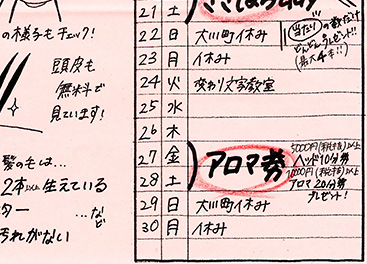 の様子もチェック!
頭皮も
無料で
見ています!
髪の毛は…
2本以上生えている
ター …など
汚れがない
21 土
22 日 大川町休み
当たりの数だけ
どんどんプレゼント!!
(最大4本!!)
23 月 休み
24 火 変わり文字教室
25 水
26 木
27 金
28 土
アロマ券
5000円(税抜き)以上
ヘッド10分券
7000円(税抜き)以上
アロマ20分券
プレゼント!
29 日 大川町休み
30 月 休み